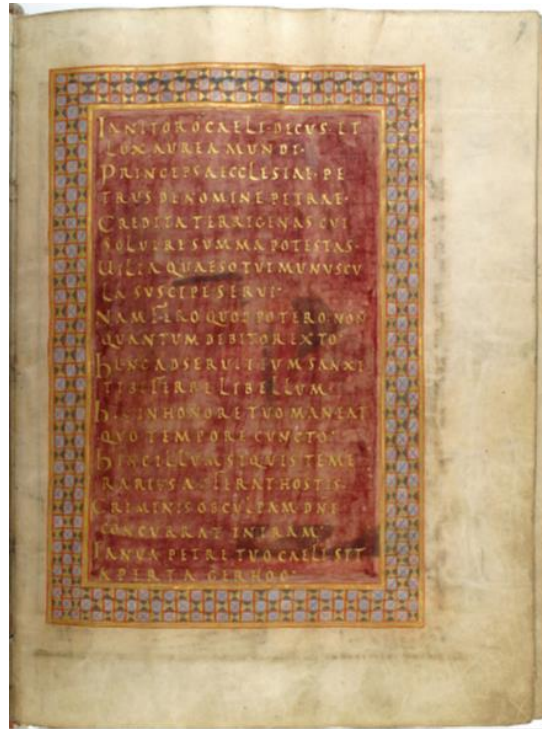 IANITOR O CAELI · DECVS · ET
LVX AVREA MVNDI ·
PRINCEPS AECCLESIAE · PE
TRVS DE NOMINE PETRAE ·
CREDITA TERRIGENAS CVI
SOLVERE SVMMA POTESTAS ·
VILIA QVAESO TVI MVNVSCV
LA SVSCIPE SERVI
NAM FERO QVOD POTERO NON
QVANTVM DEBITOR EXTO
AD SERVITIVM SANXI
TIBI FERRE LIBELLVM
HIC IN HONORE TVO MANEAT
QVO TEMPORE CVNCTO
ILLVM SI QVIS TEME
RARIVS HOSTIS
CRIMINIS OB CVLPAM DNI
CONCVRRAT IN IRAM
IANVA PETRE TVO CAELI SIT
APERTA GERHOO